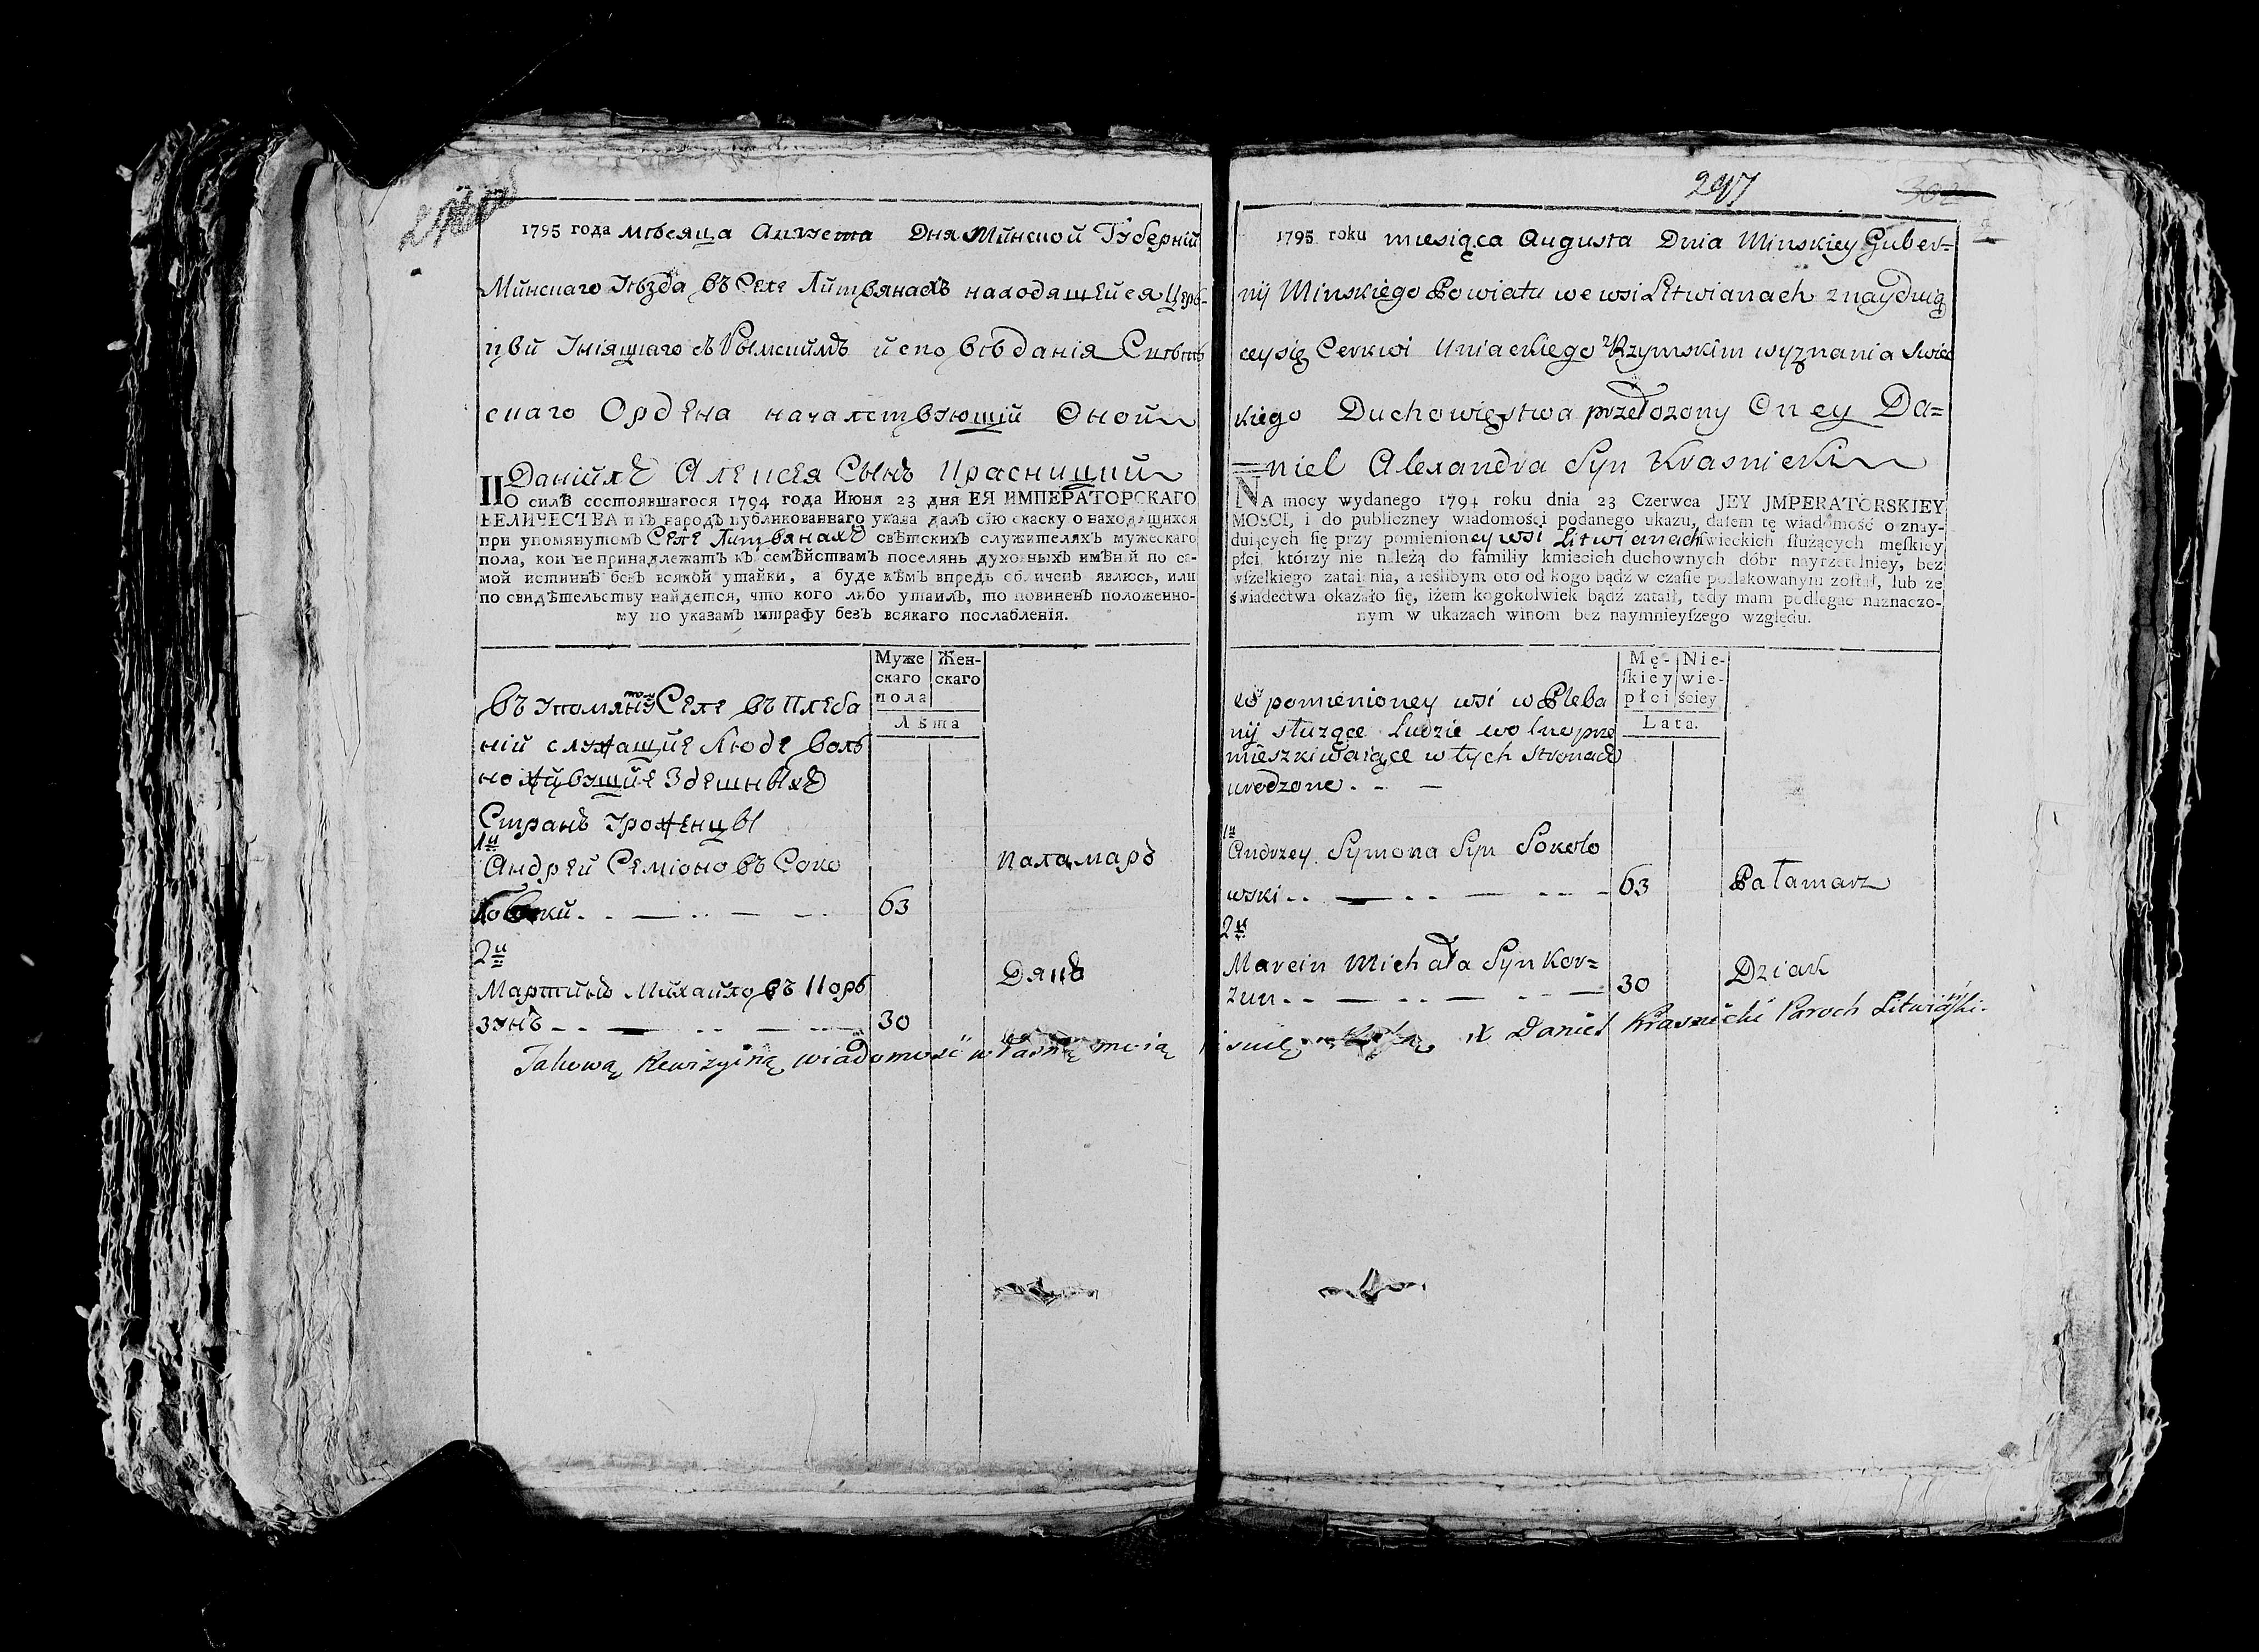 1795 года мѣсяца Августа Дня Минской Губерніи
Минскаго Уѣзда въ Селе Литвянахъ находящейся Церь-
кви Уніяцкаго съ Рымскимъ исповѣданія Свѣт
скаго Ордена началствующий Оной
Даніилъ Алексея Сынъ Красницкий
ПО силѣ состоявшагося 1794 года Июня 23 дня ЕЯ ИМПЕРАТОРСКАГО
ВЕЛИЧЕСТВА и въ народъ публикованнаго указа далъ сію скаску о находящихся
при упомянутомъ Селе Литвянахъ свѣтскихъ служителяхъ мужескаго
пола, кои не принадлежатъ къ семѣйствамъ поселянъ духовныхъ имѣній по са-
мой истиннѣ безъ всякой утайки, а буде кѣмъ впредь обличенъ явлюсь, или
по свидѣтельству найдется, что кого либо утаилъ, то повиненъ положенно-
му по указамъ штрафу безъ всякаго послабленія.
Муже
скаго
пола
Жен-
скаго
Лѣта
въ упомянутому Селе въ Плеба
ніи служащие Люде воль
но живущие Здешныхъ
Странъ Уроженцы
1й
Андрей Семіоновъ Соко
Паламаръ
63
2й
Мартинъ Михайловъ Корь
Дякъ
зунъ 30
Takową Rewizyiną wiadomość własną moią
297
302
1795 roku miesiąca Augusta Dnia Minskiey Guber=
nij Minskiego Powiatu we wsi Litwianach znayduią
cey się Cerkwi Uniackiego z Rzymskim wyznania Swiec
kiego Duchowięstwa przełozony Oney Da=
=niel Alexandra Syn Krasnicki
NA mocy wydanego 1794 roku dnia 23 Czerwca JEY JMPERATORSKIEY
MOSCI, i do publiczney wiadomości podanego ukazu, dałem tę wiadomość o znay-
duiących się przy pomienioney wsi Litwianach świeckich służących męskiey
płci, którzy nie należą do familiy kmiecich duchownych dóbr nayrzetelniey, bez
wszelkiego zataienia, a iesłibym oto od kogo bądź w czasie poszlakowanym został, lub ze
świadectwa okazało się, iżem kogokolwiek bądź zataił, tedy mam podlegać naznaczo-
nym w ukazach winom bez naymnieyszego względu.
Mę-
skiey
płci
Nie-
wie-
ściey
Lata.
w pomienioney wsi w Pleba
nij służące Ludzie wolno prze
mieszkiwaiące w tych Stronach
urodzone.
1й
Andrzey Symona Syn Sokoło
wski 63 Pałamarz
2й
Marcin Michała Syn Kor=
Dziak
zun 30
X Daniel Krasnicki Paroch Litwiański.